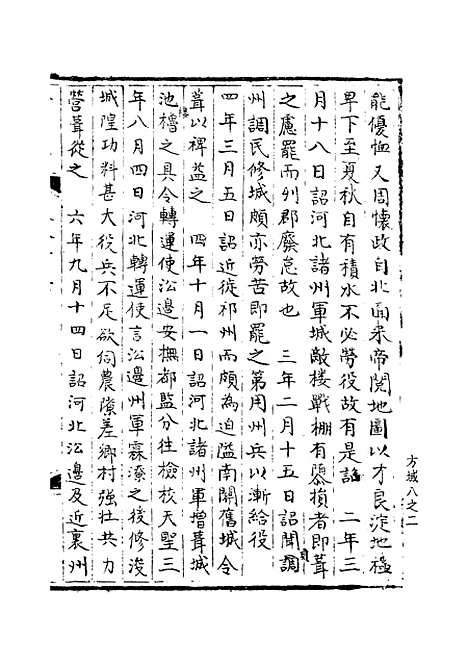 能優恤又周懷政自北面来帝閱地圖以才良淀地極
卑下至夏秋自有積水不必勞役故有是詔　二年三
月十八日詔河北諸州軍城敵楼戰棚有隳損者即葺
之慮罷而列郡廢怠故也　三年二月十五日詔聞調
州調民修城頗亦勞苦即罷之第用州兵以漸給役
四年三月五日詔近徙祁州而頗為迫隘南關舊城令
葺以裨益之　四年十月一日詔河北諸州軍增葺城
池櫓之具令轉運使㳂邊安撫都監分往檢校天聖三
年八月四日河北轉運使言㳂邊州軍霖潦之後修浚
城隍功料甚大役兵不足欲伺農隙差鄉村强壮共力
营葺從之　六年九月十四日詔河北㳂邊及近裏州
方域八之二